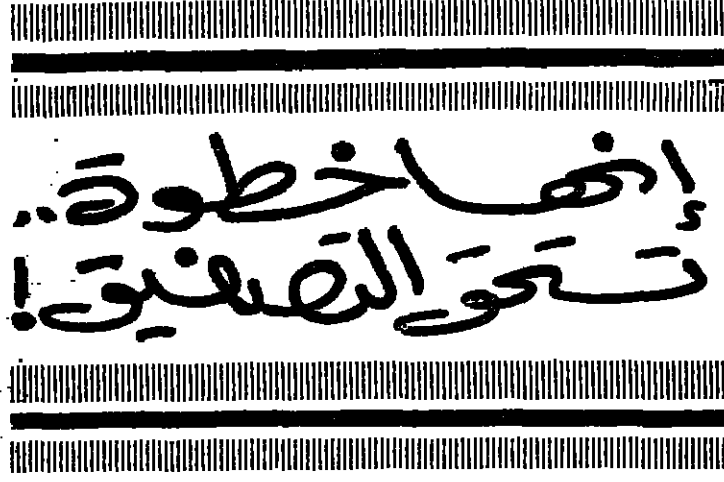 إنها خطوة..
تستحق التصفيق!